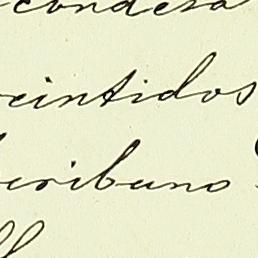 condesa
veintidos
scribano